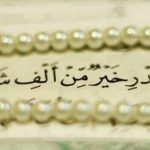 دْرِ خَيْرٌ مِّنْ أَلْفِ شَ